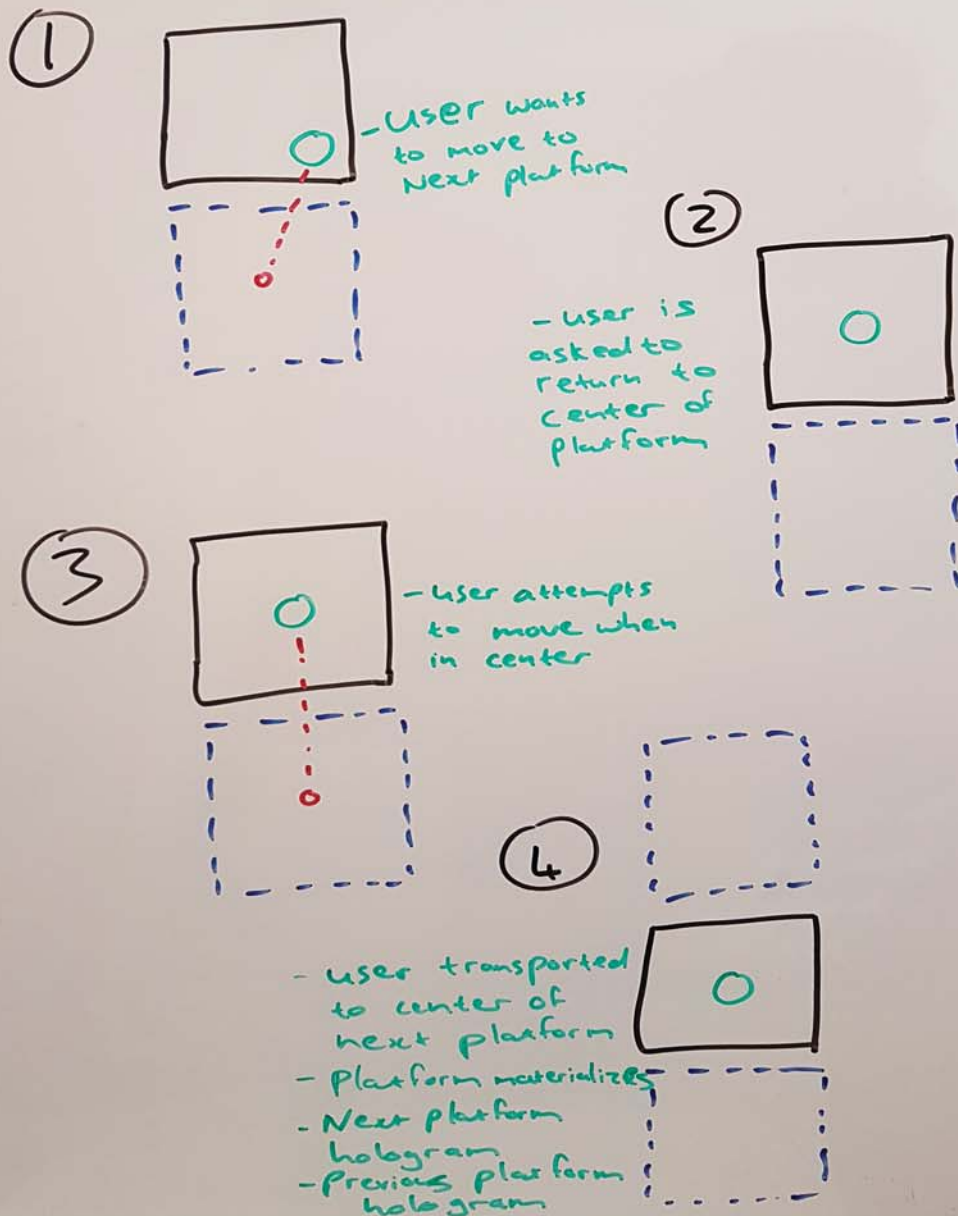 1
- User wants
to move to
Next platform
2
- user is
asked to
return to
center of
platform
3
- user attempts
to move when
in center
4
- user transported
to center of
next platform
- Platform materializes
- Next platform
hologram
- Previous platform
hologram